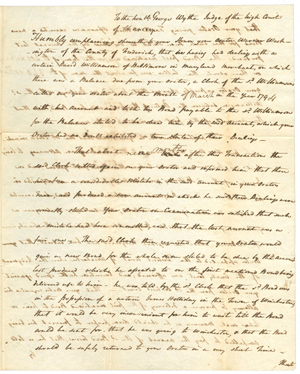 To the hon. George Wythe Judge of the high Court
of Chancery
Humbly complaining sheweth unto your Honor your Orator
of the County of Frederick, that he having had dealing with a
certain David Williamson of Baltimore in Maryland merchant, on which
there was a Balance due from your orator, a Clerk of the sd Williamson
about the Month of March in the Year 1794
with his account and took his Bond payable to the sd Williamson
for the Balance stated to be due from him by the said account, which your
Orator had no doubt exhibited a true state of their Dealings
That about months after this Transaction the
said Clerk called again upon your orator and informed him that there
had been a considerable Mistake in the said account in your Orator's
favor, and produced a new account in which he said their Dealings were
correctly stated. Your Orator on Examination was satisfied that such
a mistake had been committed, and that the last account was a
true one. The said Clerk then requested that your Orator would
give a new Bond for the whole sum stated to be due by the account
last produced which he agreed to on the first mentioned Bond being
delivered up to him. He was told by the sd Clerk that the sd Bond was
in the possession of a certain James Holliday in the Town of Winchester
that it would be very inconvenient for him to wait till the Bond
could be sent for, that he was going to Winchester, & that the Bond
should be safely returned to your Orator in a very short Time.
That